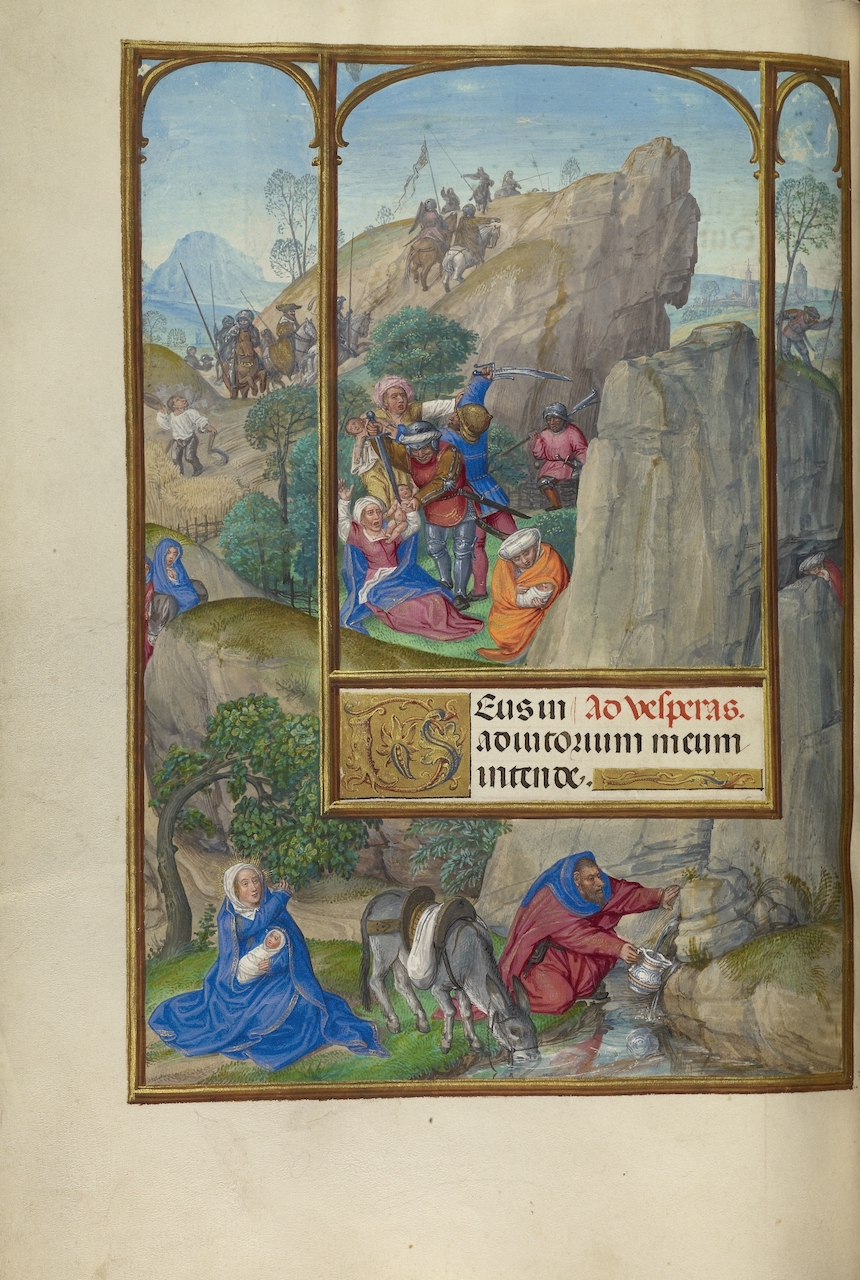 Deus in Ad vesperas.
adiutorium meum
intende.